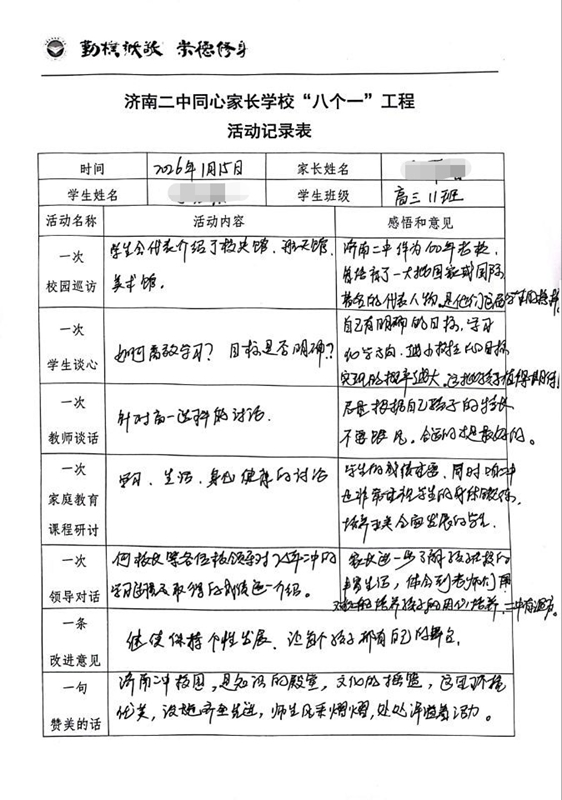 勤朴诚敬 崇德修身
济南二中同心家长学校“八个一”工程
活动记录表
时间 2026年1月15日 家长姓名
学生姓名 学生班级 高三11班
活动名称 活动内容 感悟和意见
一次
校园巡访
学生会代表介绍了校史馆、航天馆、
美术馆。
济南二中作为100年老校,
培养了一大批国家或国际
一次
学生谈心
如何高效学习?目标是否明确?
自己有明确的目标,学习
实现的概率越大。
一次
教师谈话
针对高一选科的讨论
尽量根据自己孩子的特长
不要跟风,合适的才是最好的。
一次
家庭教育
课程研讨
学习、生活、身心健康的讨论
学生的成绩重要,同时二中
也非常重视学生的身体健康,
培养出来全面发展的学生.
一次
领导对话
何校长等各位校领导对济南二中的
学习 及取得的成绩进一介绍。
家长进一步了解孩子在校的
日常生活,体会到老师们用
一条
改进意见
继续保持个性发展,让每个孩子都有自己的舞台
一句
赞美的话
济南二中校园,是知识的殿堂,文化的摇篮,这里环境
优美,设施齐全先进,师生风采熠熠,处处洋溢着活力。